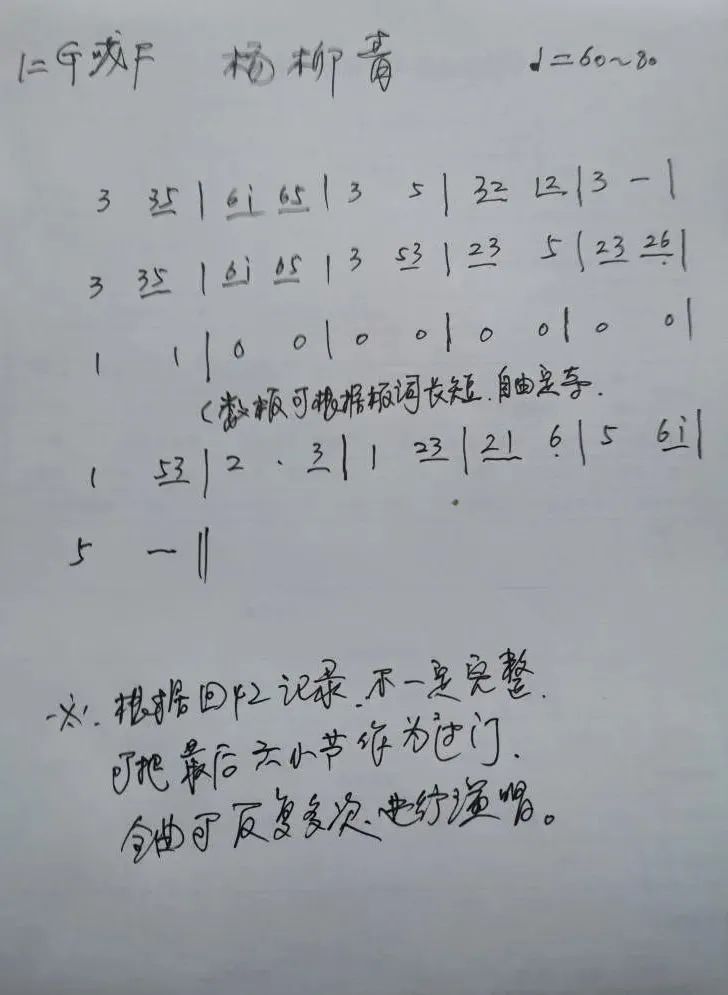 1=G或F 杨柳青 ♩=60~80
3 35 | 6i 65 | 3 5 | 32 12 | 3 - |
3 35 | 6i 65 | 3 53 | 23 5 | 23 26 |
1 1 | 0 0 | 0 0 | 0 0 | 0 0 |
(数板可根据板词长短.自由定夺.
1 53 | 2 · 3 | 1 23 | 21 6 | 5 6i |
5 — ‖
※.根据回忆记录.不一定完整.
可把最后六小节作为过门.
全曲可反复多次.进行演唱。